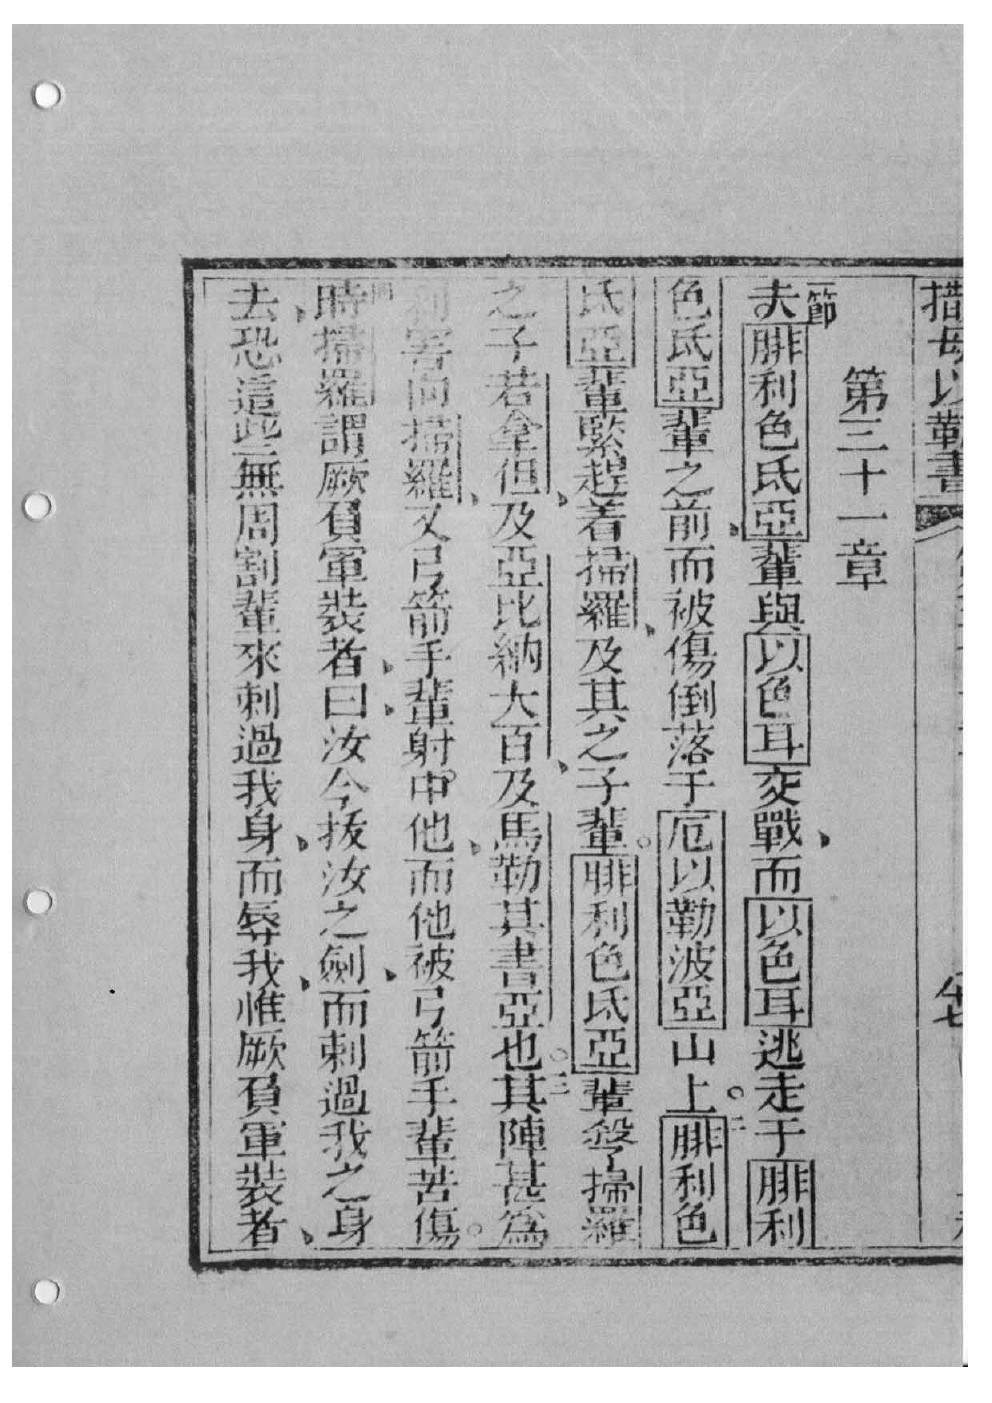 措母以勒書
第三十一章
一節夫腓利色氐亞輩與以色耳交戰、而以色耳逃走于腓利
色氐亞輩之前、而被傷倒落于厄以勒波亞山上。二腓利色
氐亞輩緊趕着掃羅、及其之子輩。腓利色氐亞輩殺了掃羅
之子若拿但、及亞比納大百、及馬勒其書亞也。三其陣甚為
利害向掃羅、又弓箭手輩射中他、而他被弓箭手輩苦傷。
四時掃羅謂厥負軍裝者、曰、汝今拔汝之劍、而刺過我之身
去、恐這些無周割輩來刺過我身、而辱我、惟厥負軍裝者、